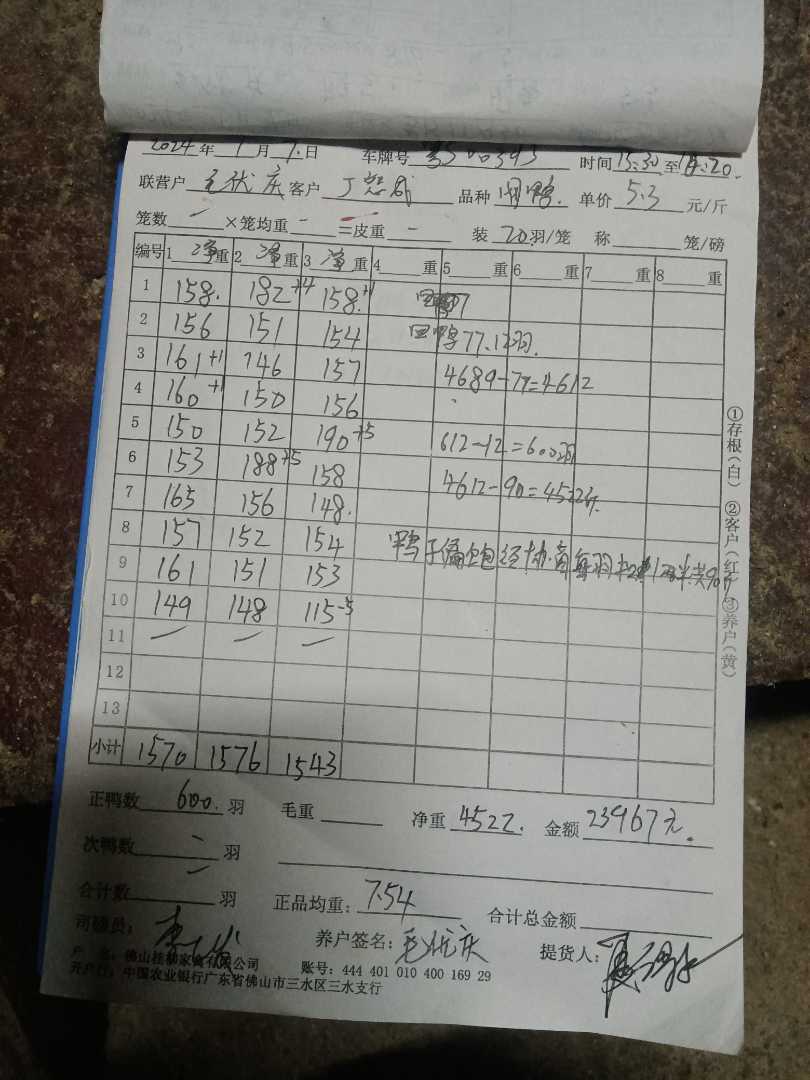 2024年 9月 7.日 车牌号 时间 15:30 至 18:20.
联营户 毛优庆 客户 品种 单价 5.3 元/斤
笼数 一 ×笼均重 一 =皮重 一 装 20 羽/笼 称 笼/磅
编号 1 净重 2 净重 3 净重 4 重 5 重 6 重 7 重 8 重
1 158. 182+4 158.+1
2 156 151 154 回鸭77.12羽.
3 161+1 146 157 4689-77=4612
4 160+1 150 156
5 150 152 190+5 612-12=600羽
6 153 188+5 158 4612-90=4522斤.
7 165 156 148.
8 157 152 154 鸭子偏饱经协商每羽扣 1两半共90斤
9 161 151 153
10 149 148 115-5
11 一 一 一
12
13
小计 1570 1576 1543
正鸭数 600. 羽 毛重 净重 4522. 金额 23967元.
次鸭数 一 羽
合计数 一 羽 正品均重: 7.54 合计总金额
司磅员: 养户签名: 毛优庆 提货人:
户 名: 佛山桂柳家禽有限公司 账号: 444 401 010 400 169 29
开户行: 中国农业银行广东省佛山市三水区三水支行
①存根(白) ②客户(红) ③养户(黄)